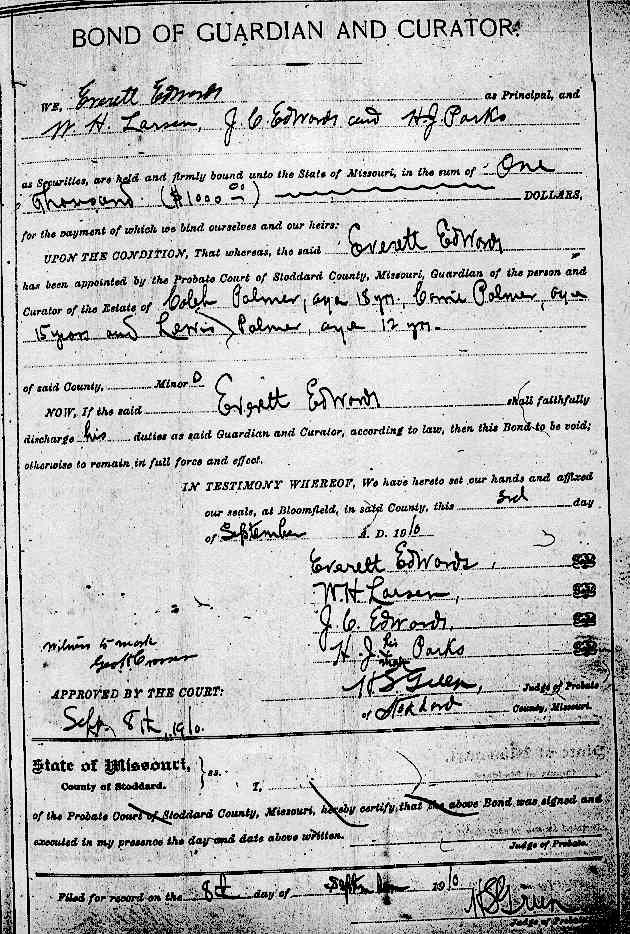 BOND OF GUARDIAN AND CURATOR.
WE, Everett Edwards as Principal, and
W. H. Larsen, J. C. Edwards and H. J. Parks
as Securities, are held and firmly bound unto the State of Missouri, in the sum of One
Thousand ($1000 00) DOLLARS,
for the payment of which we bind ourselves and our heirs:
UPON THE CONDITION, That whereas, the said Everett Edwards
has been appointed by the Probate Court of Stoddard County, Missouri, Guardian of the person and
Curator of the Estate of Palmer, age 18 yrs., Palmer, age
15 years and Lewis Palmer, age 12 yrs.
of said County, Minor s
NOW, If the said Everett Edwards shall faithfully
discharge his duties as said Guardian and Curator, according to law, then this Bond to be void;
otherwise to remain in full force and effect.
IN TESTIMONY WHEREOF, We have hereto set our hands and affixed
our seals, at Bloomfield, in said County, this 3rd day
of September A. D. 1910
Everett Edwards,
W. H. Larsen,
J. C. Edwards.
H. J. his mark Parks
Witness to mark
Geo
APPROVED BY THE COURT:
Judge of Probate
Sept. 8th, 1910.
of Stoddard County, Missouri.
State of Missouri, } ss.
County of Stoddard.
I,
of the Probate Court of Stoddard County, Missouri, hereby certify, that the above Bond was signed and
executed in my presence the day and date above written.
Judge of Probate.
Filed for record on the 8th day of September 1910
Judge of Probate